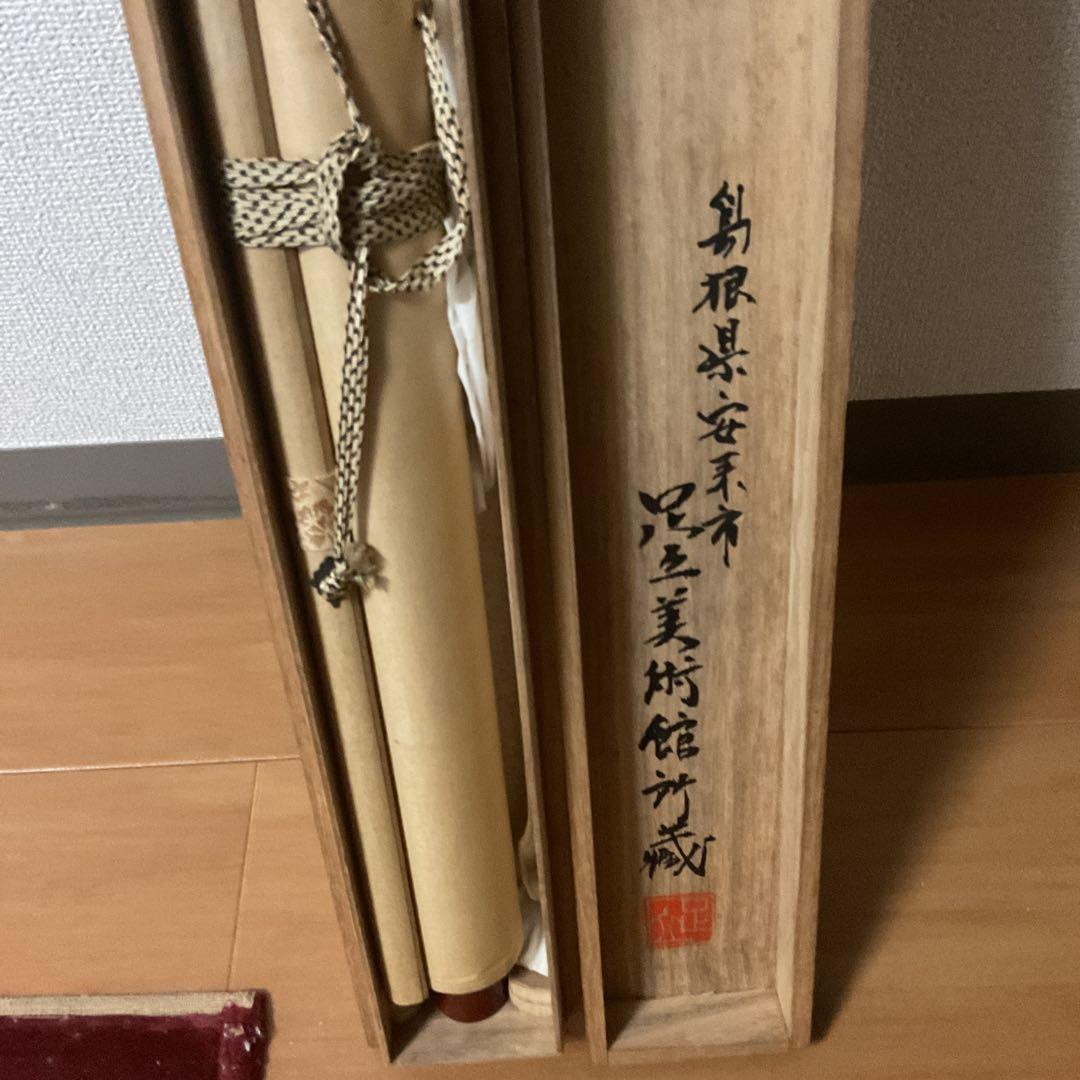 島根県安来市
足立美術館所蔵